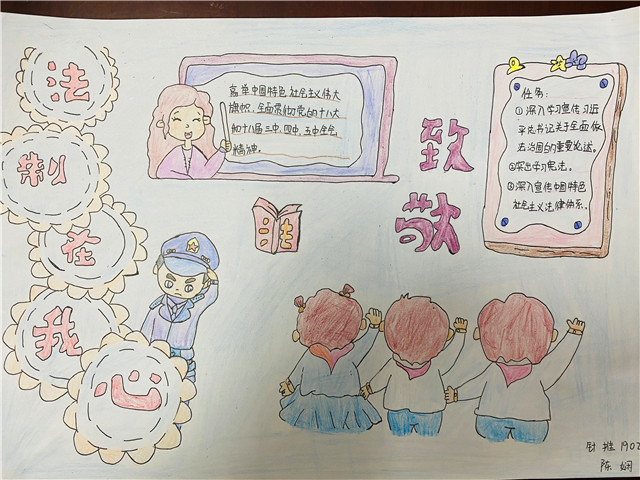 法
制
在
我
心
高举中国特色社会主义伟大
旗帜,全面贯彻党的十八大
和十八届三中,四中,五中全会
精神。
致
敬
任务:
①深入学习宣传习近
平总书记关于全面依
法治国的重要论述。
②突出学习宪法。
③深入宣传中国特色
社会主义法律体系。
1902
陈娴